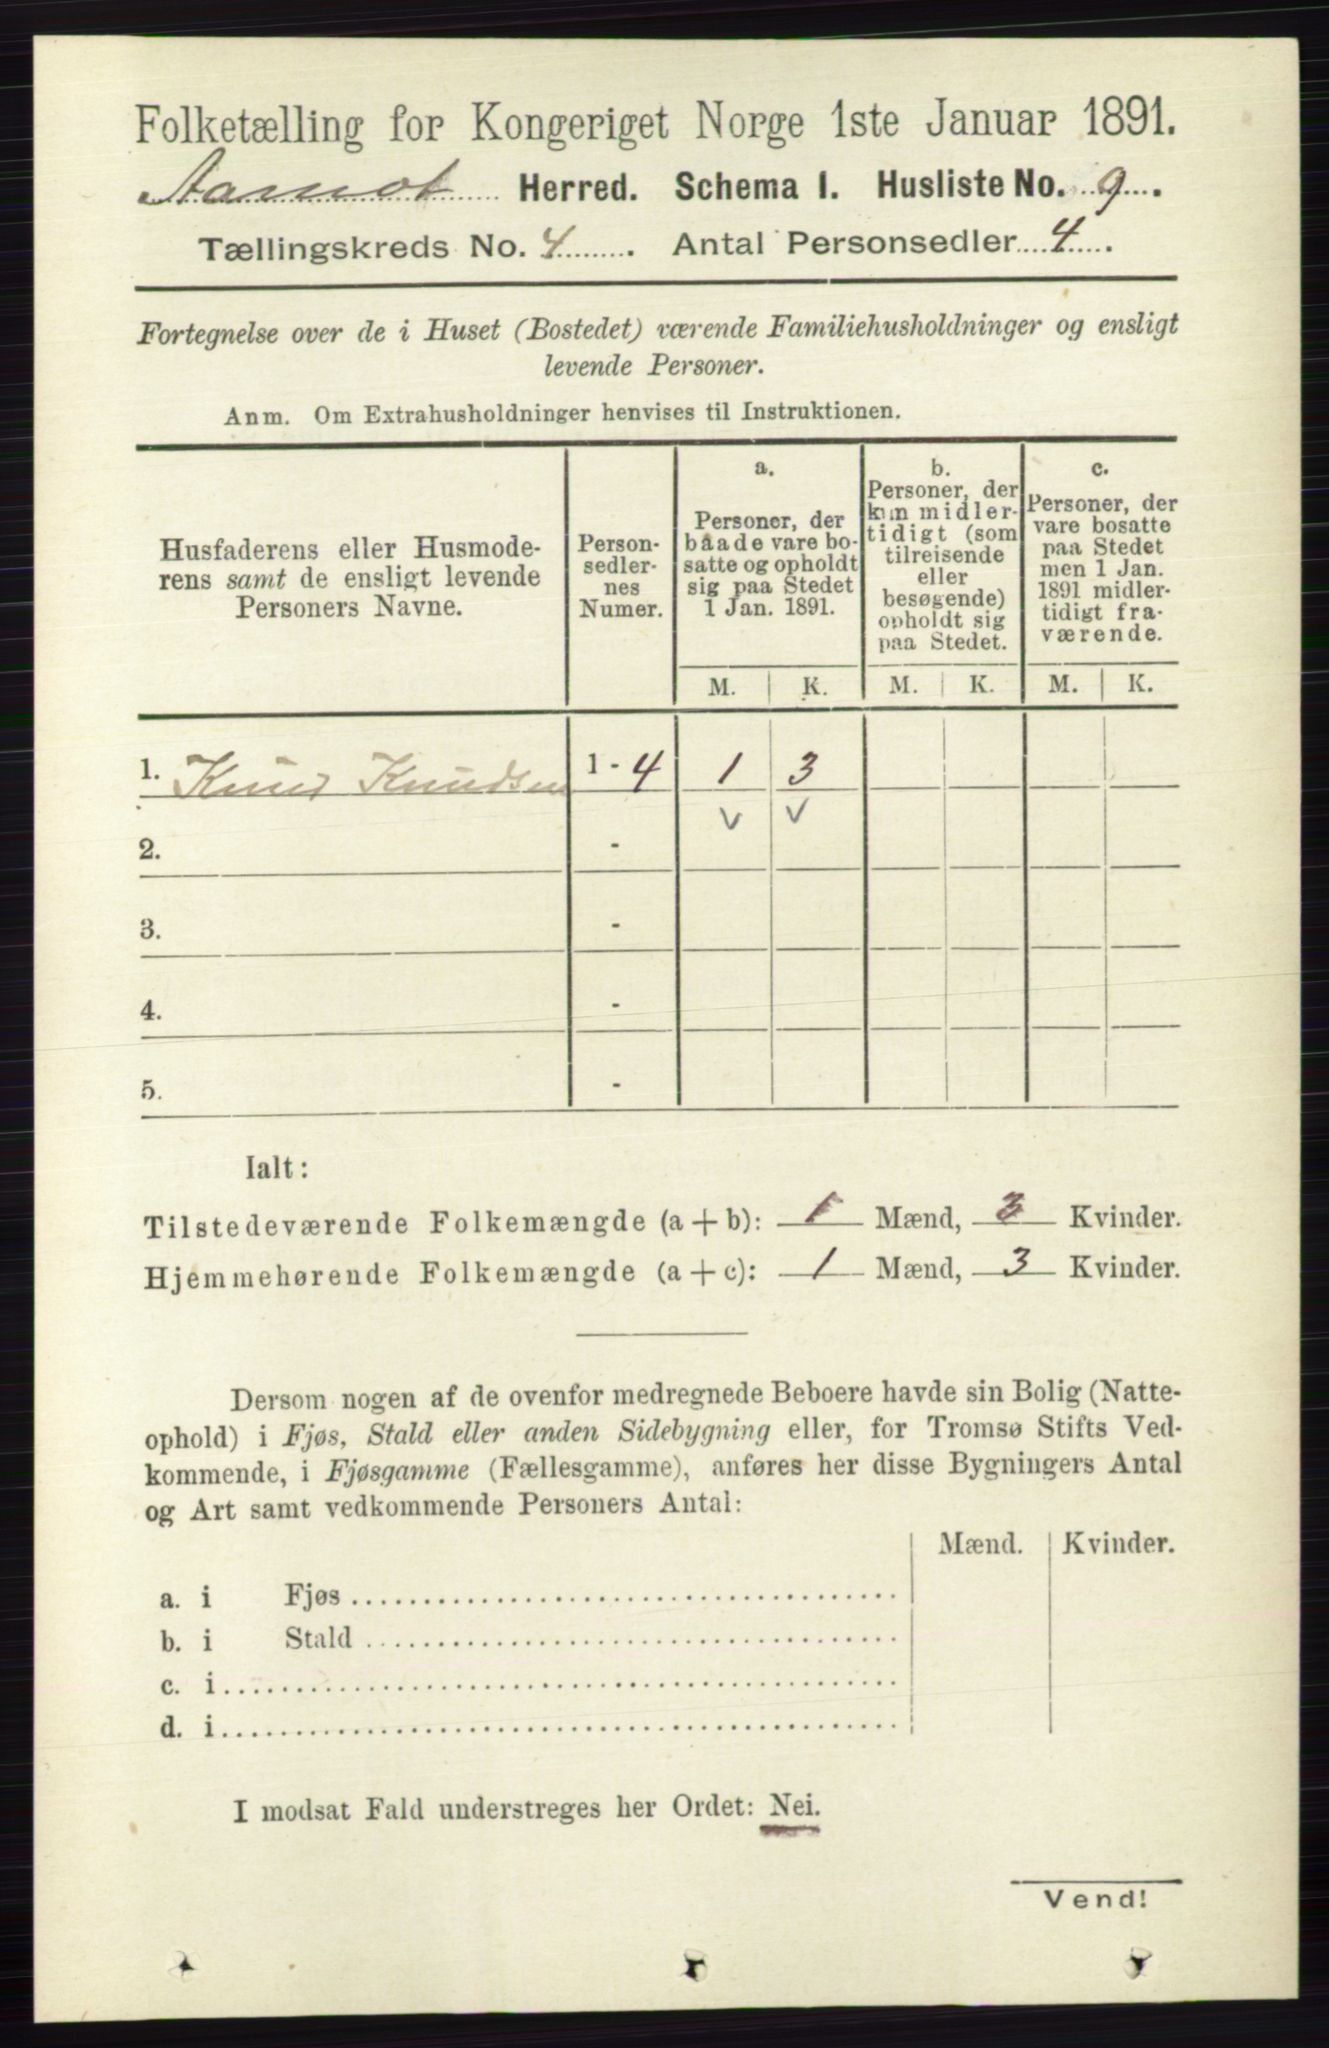 Folketælling for Kongeriget Norge 1ste Januar 1891.
Aamot Herred. Schema I. Husliste No. 9.
Tællingskreds No. 4. Antal Personsedler 4.
Fortegnelse over de i Huset (Bostedet) værende Familiehusholdninger og ensligt
levende Personer.
Anm. Om Extrahusholdninger henvises til Instruktionen.
Husfaderens eller Husmode-
rens samt de ensligt levende
Personers Navne.
Person-
sedler-
nes
Numer.
a.
Personer, der
baade vare bo-
satte og opholdt
sig paa Stedet
1 Jan. 1891.
b.
Personer, der
kun midler-
tidigt (som
tilreisende
eller
besøgende)
opholdt sig
paa Stedet.
c.
Personer, der
vare bosatte
paa Stedet
men 1 Jan.
1891 midler-
tidigt fra-
værende.
M. K. M. K. M. K.
1. Knud Knudsen 1 - 4 1 3
v v
2. -
3. -
4. -
5. -
Ialt:
Tilstedeværende Folkemængde (a + b): 1 Mænd, 3 Kvinder.
Hjemmehørende Folkemængde (a + c): 1 Mænd, 3 Kvinder.
Dersom nogen af de ovenfor medregnede Beboere havde sin Bolig (Natte-
ophold) i Fjøs, Stald eller anden Sidebygning eller, for Tromsø Stifts Ved-
kommende, i Fjøsgamme (Fællesgamme), anføres her disse Bygningers Antal
og Art samt vedkommende Personers Antal:
Mænd. Kvinder.
a. i Fjøs
b. i Stald
c. i
d. i
I modsat Fald understreges her Ordet: Nei.
Vend!